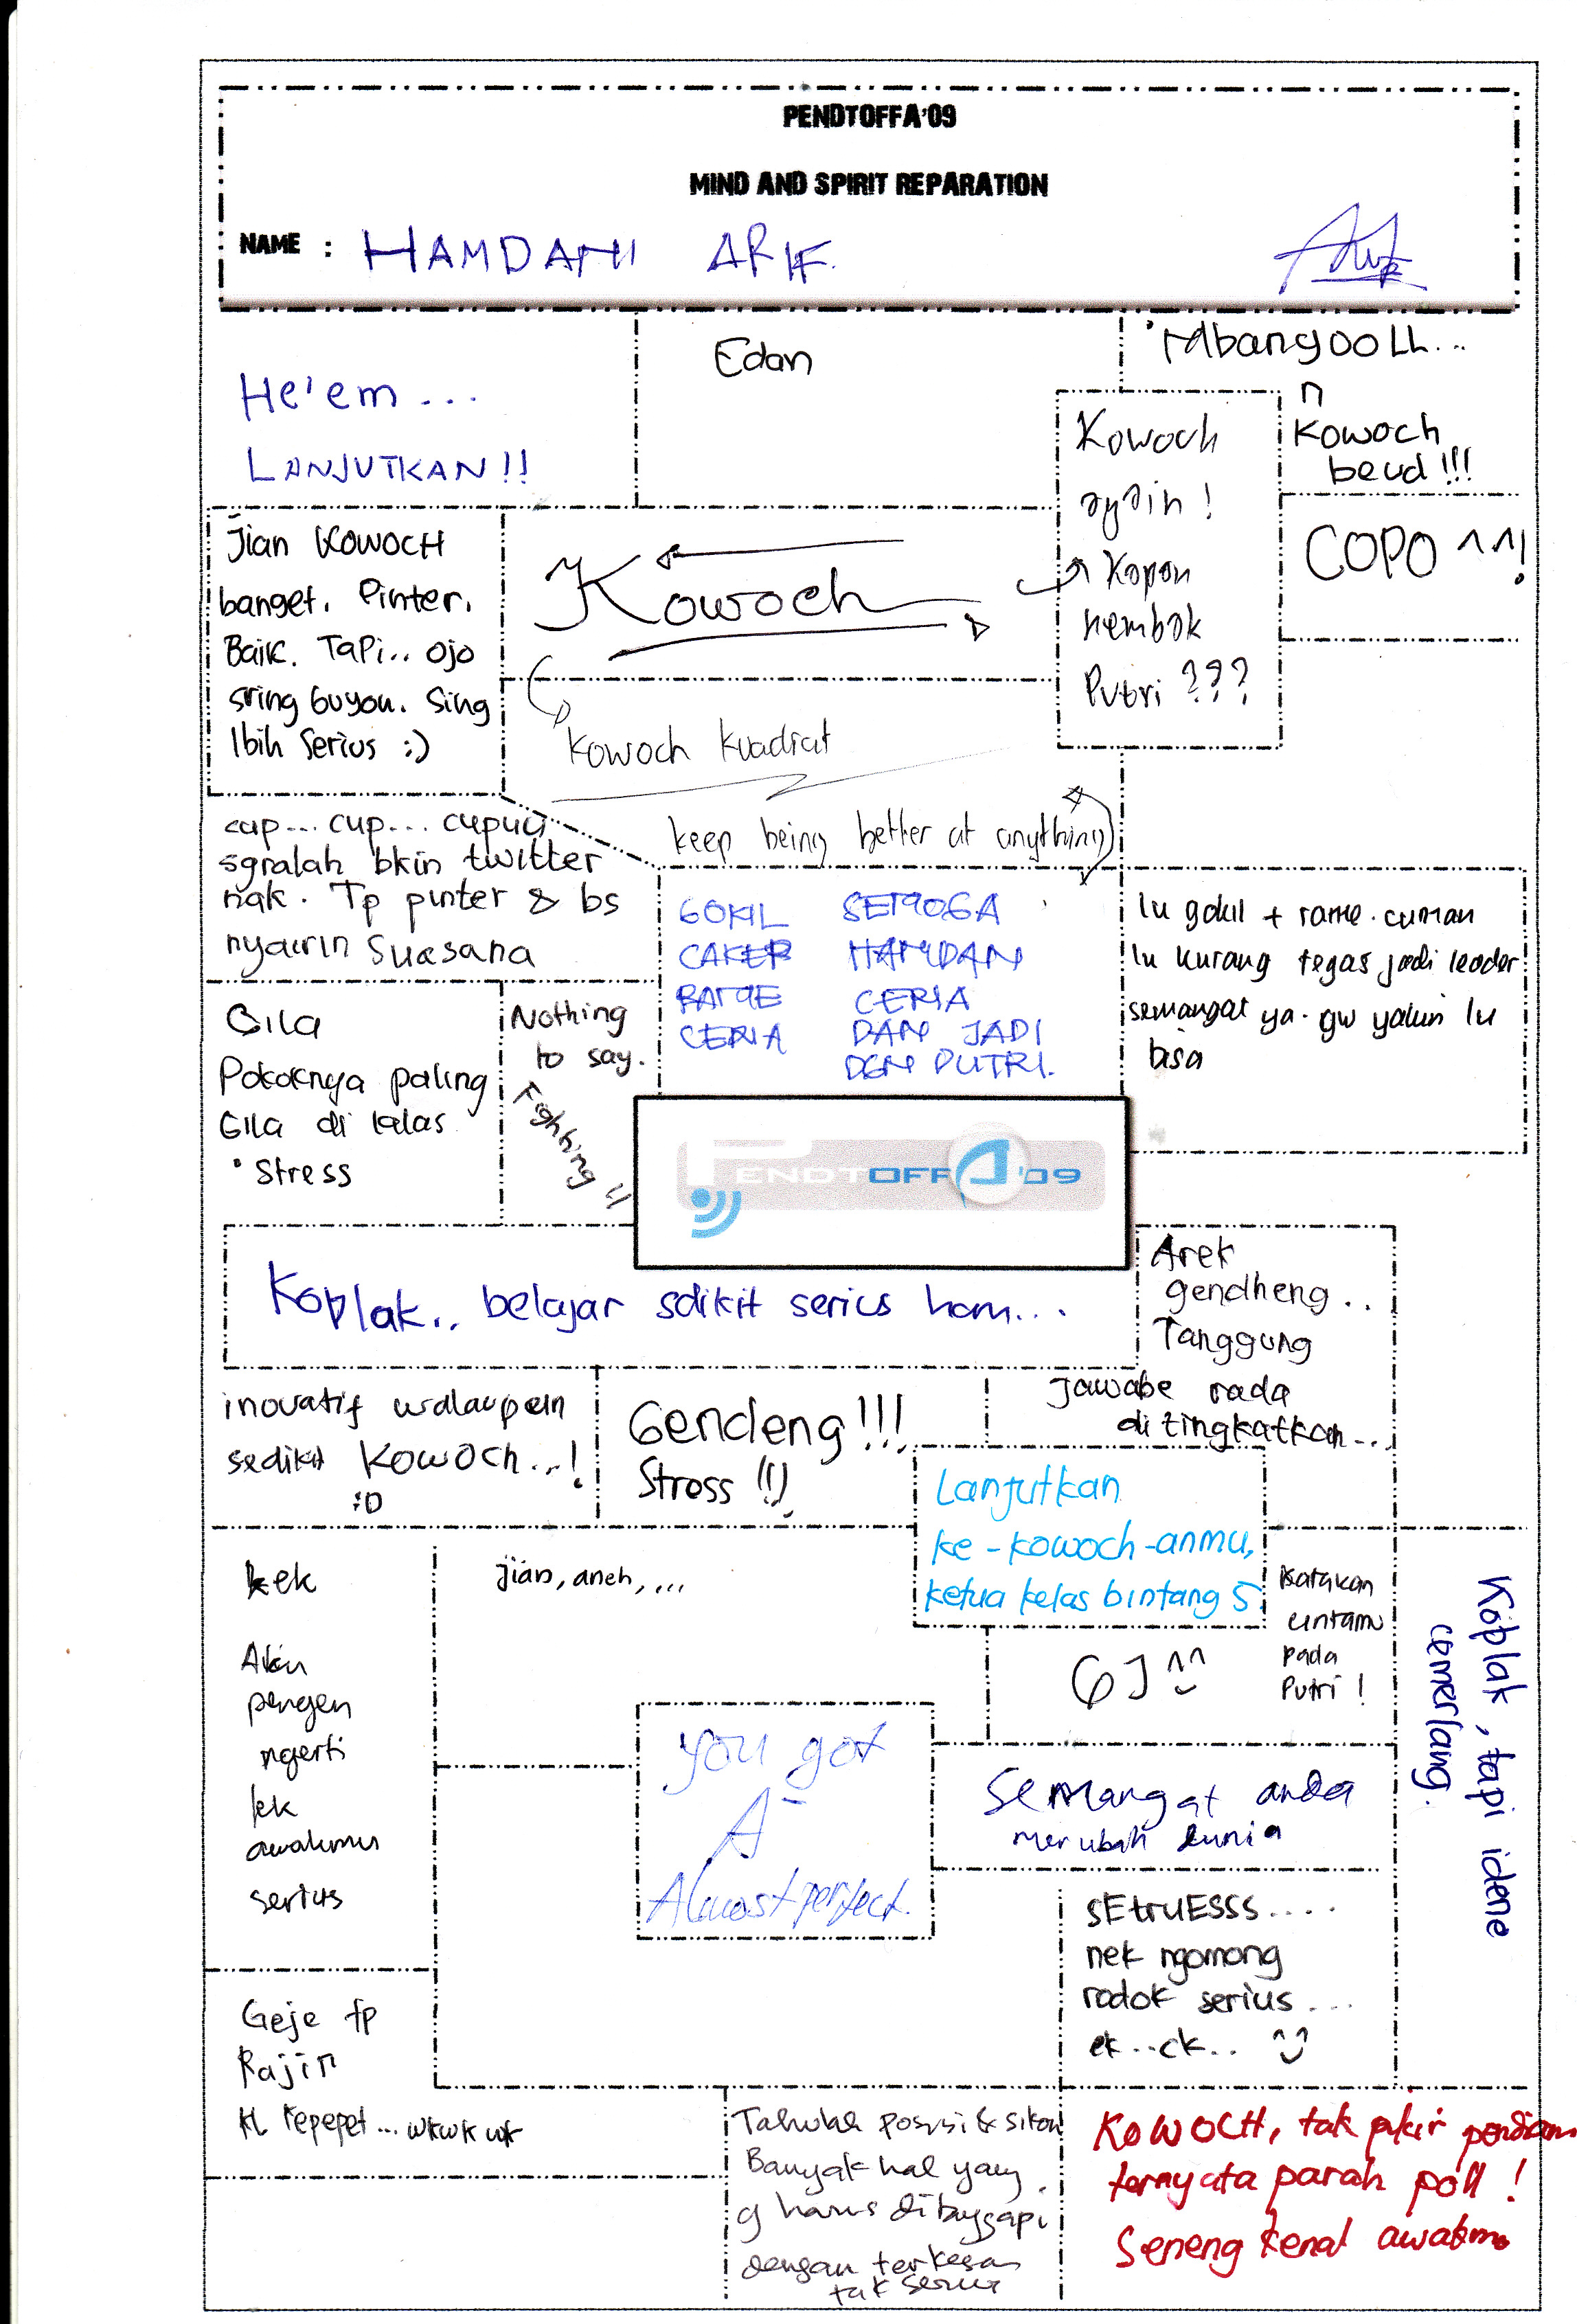 PENDTOFFA'09
MIND AND SPIRIT REPARATION
NAME : HAMDANI ARIF
He'em ...
LANJUTKAN!!
Edan
Mbangooll...
n
Kowoch
beud!!!
Kowoch
again!
Kapan
nembak
Putri ???
COPO ^^!
Jian KOWOCH
banget. Pinter.
Baik. Tapi.. ojo
sring guyon. Sing
lbih serius :)
Kowoch
kowoch kuadrat
keep being better at anything
cup... cup... cupuu
sgralah bkin twitter
nak. Tp pinter & bs
nyairin suasana
GOKIL
CAKEP
RAME
CERIA
SEMOGA
HAMDAN
CERIA
DAN JADI
DGN PUTRI.
lu gokil + rame. cuman
lu kurang tegas jadi leader
semangat ya. gw yakin lu
bisa
Gila
Pokoknya paling
Gila di kelas
• Stress
Nothing
to say.
Fighting !!
PENDTOFFA'09
Koplak.. belajar sdikit serius ham...
Arek
gendheng ..
Tanggung
Jawabe rada
ditingkatkan...
inovatif walaupun
sedikit Kowoch...!
:D
Gendeng!!!
Stress !!)
Lanjutkan
ke-kowoch-anmu,
ketua kelas bintang 5.
kek
Aku
pengen
ngerti
lek
awakmu
serius
jian, aneh, ...
GJ ^^
Katakan
cintamu
pada
Putri !
Koplak, tapi idene
cemerlang.
you got
A
Almost perfect.
Semangat anda
merubah dunia
SEtruESSS....
nek ngomong
rodok serius ...
ek..ck..
Geje tp
Rajin
kl kepepet... wkwkwk
Tahulah posisi & sikon
Banyak hal yang
g harus ditanggapi
dengan terkesan
tak serius
KOWOCH, tak pikir pendiam
ternyata parah poll !
Seneng kenal awakmu